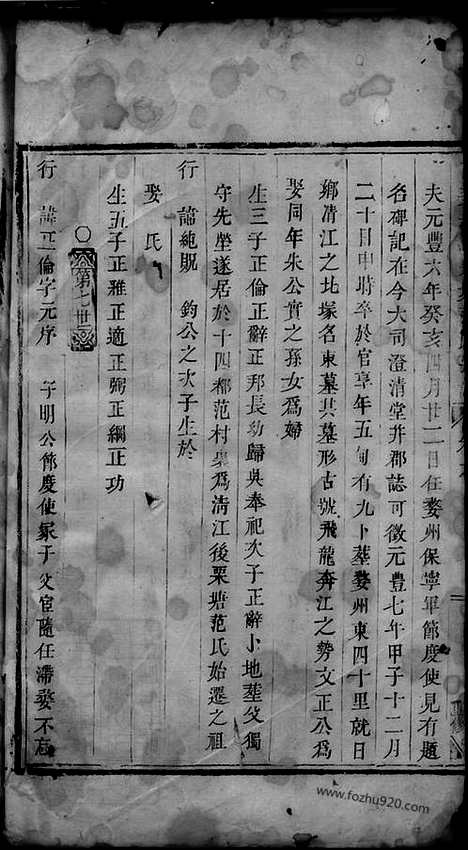 夫元豐六年癸亥四月廿二日任婺州保寧軍節度使見有題
名碑記在今大司澄清堂并郡誌可徵元豐七年甲子十二月
二十日申時卒於官享年五旬有九卜塟婺州東四十里就日
鄉清江之圠塚名東墓其墓形古號飛龍奔江之勢文正公為
娶同年朱公實之孫女爲婦
生三子正倫正辭正邦長幼歸吳奉祀次子正辭卜地塟父獨
守先塋遂居於十四都范村裊爲清江後栗塘范氏始遷之祖
行 諱純賜 鈞公之次子生於
娶 氏
生五子正雅正適正卿正綱正功
第七世
行 諱正倫字元序 子明公節度使冢子父宦隨任滯婺不忘
www.fozhu920.com